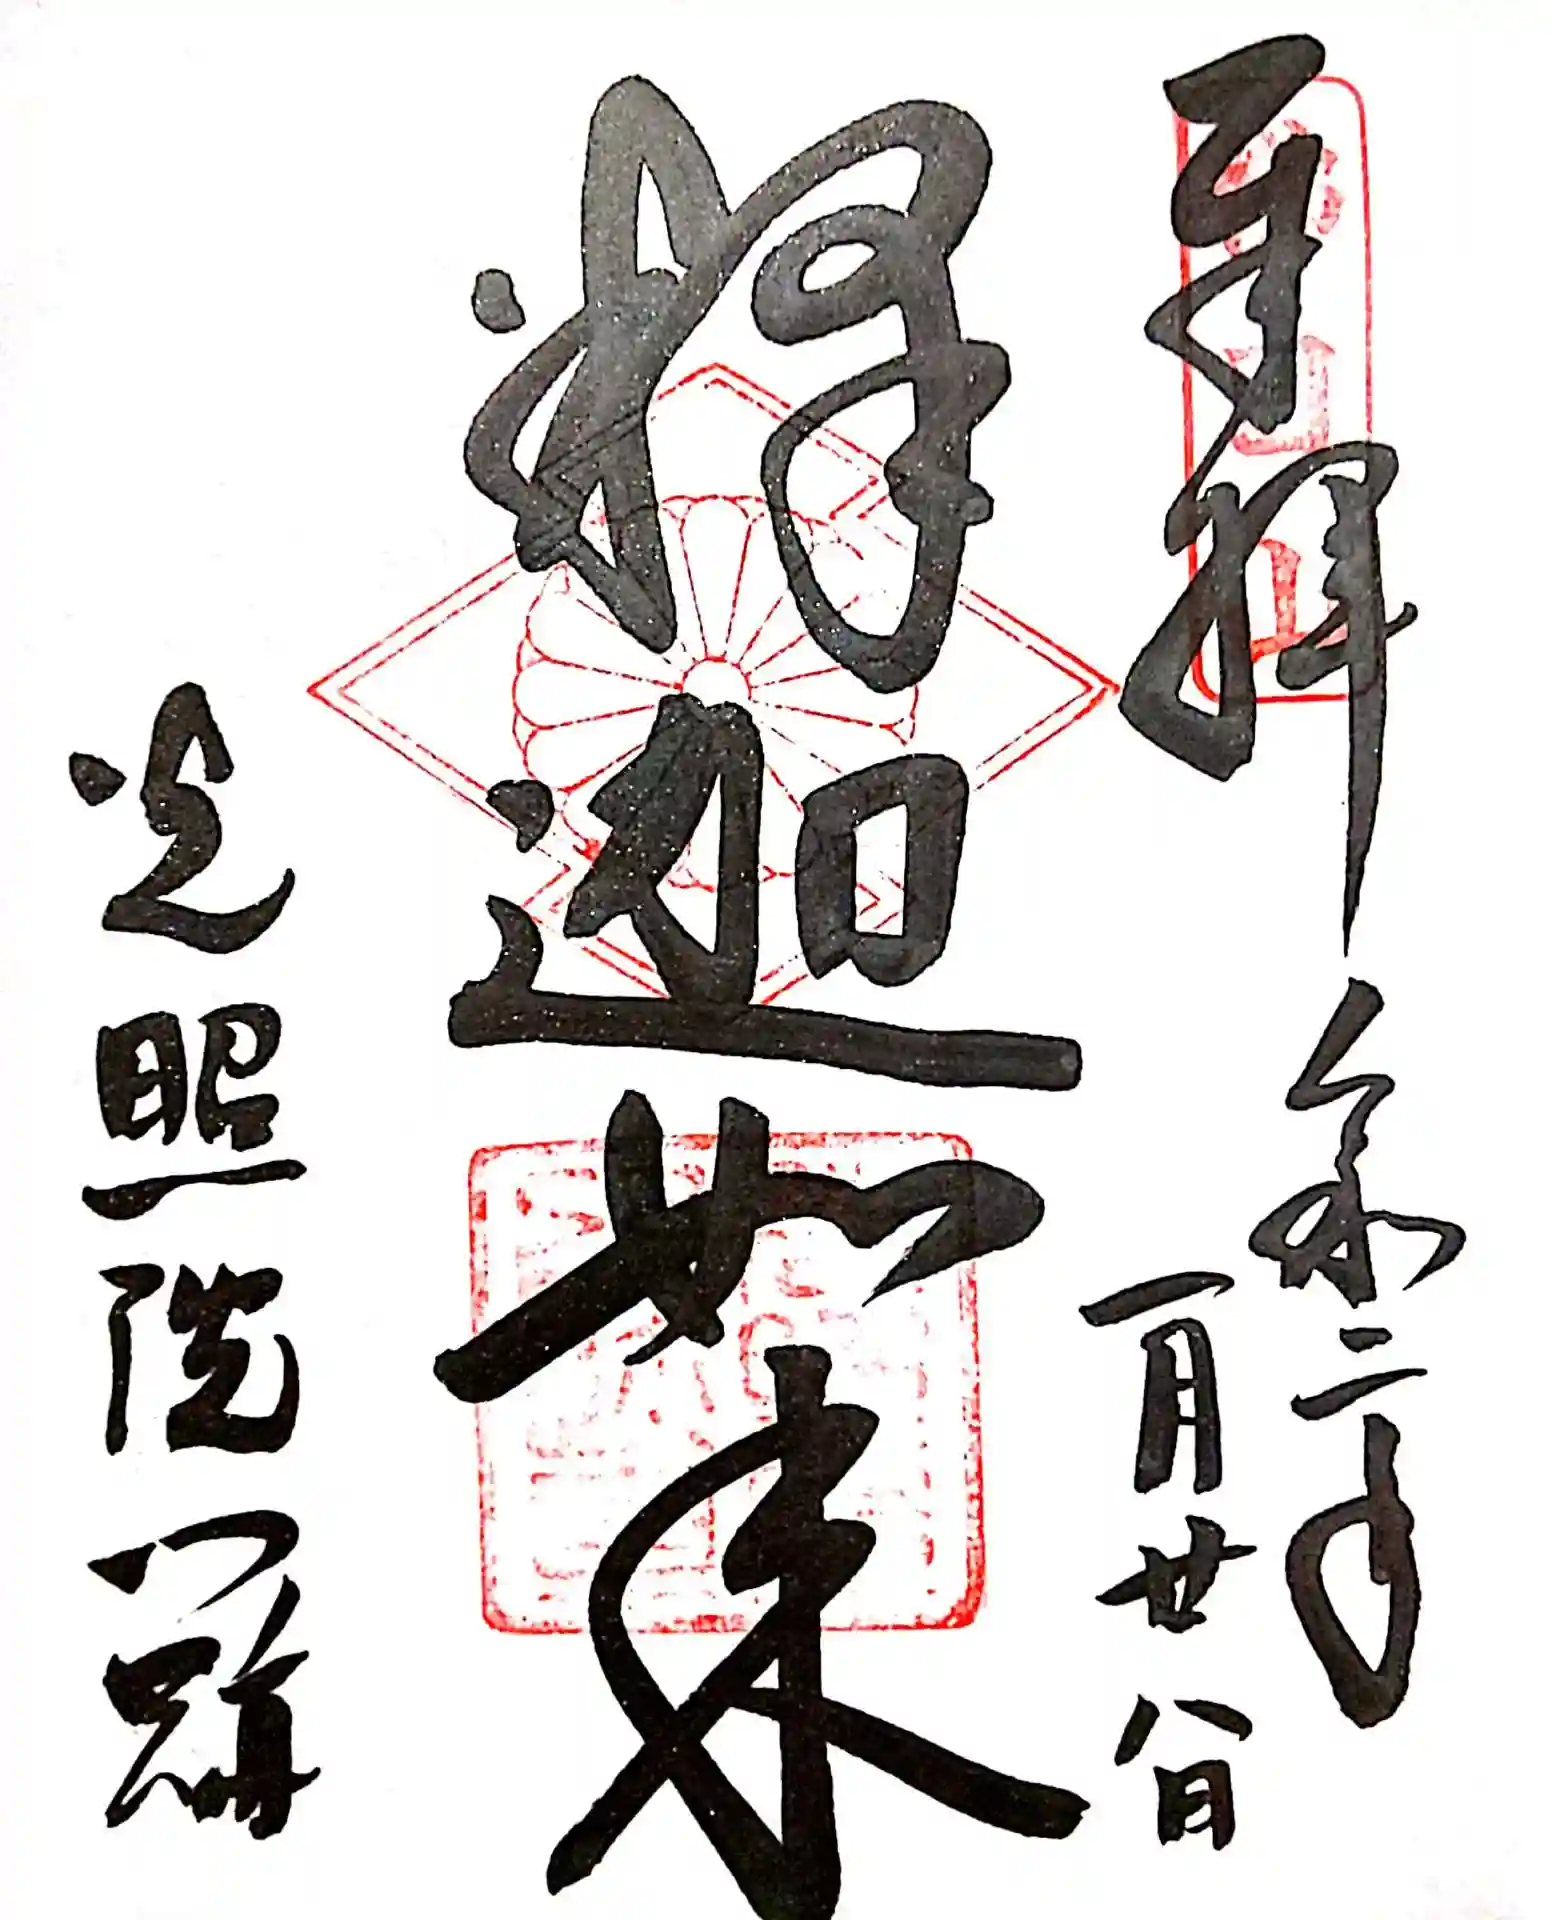 奉拝 令和二年
一月廿八日
釋迦如来
光照院門跡